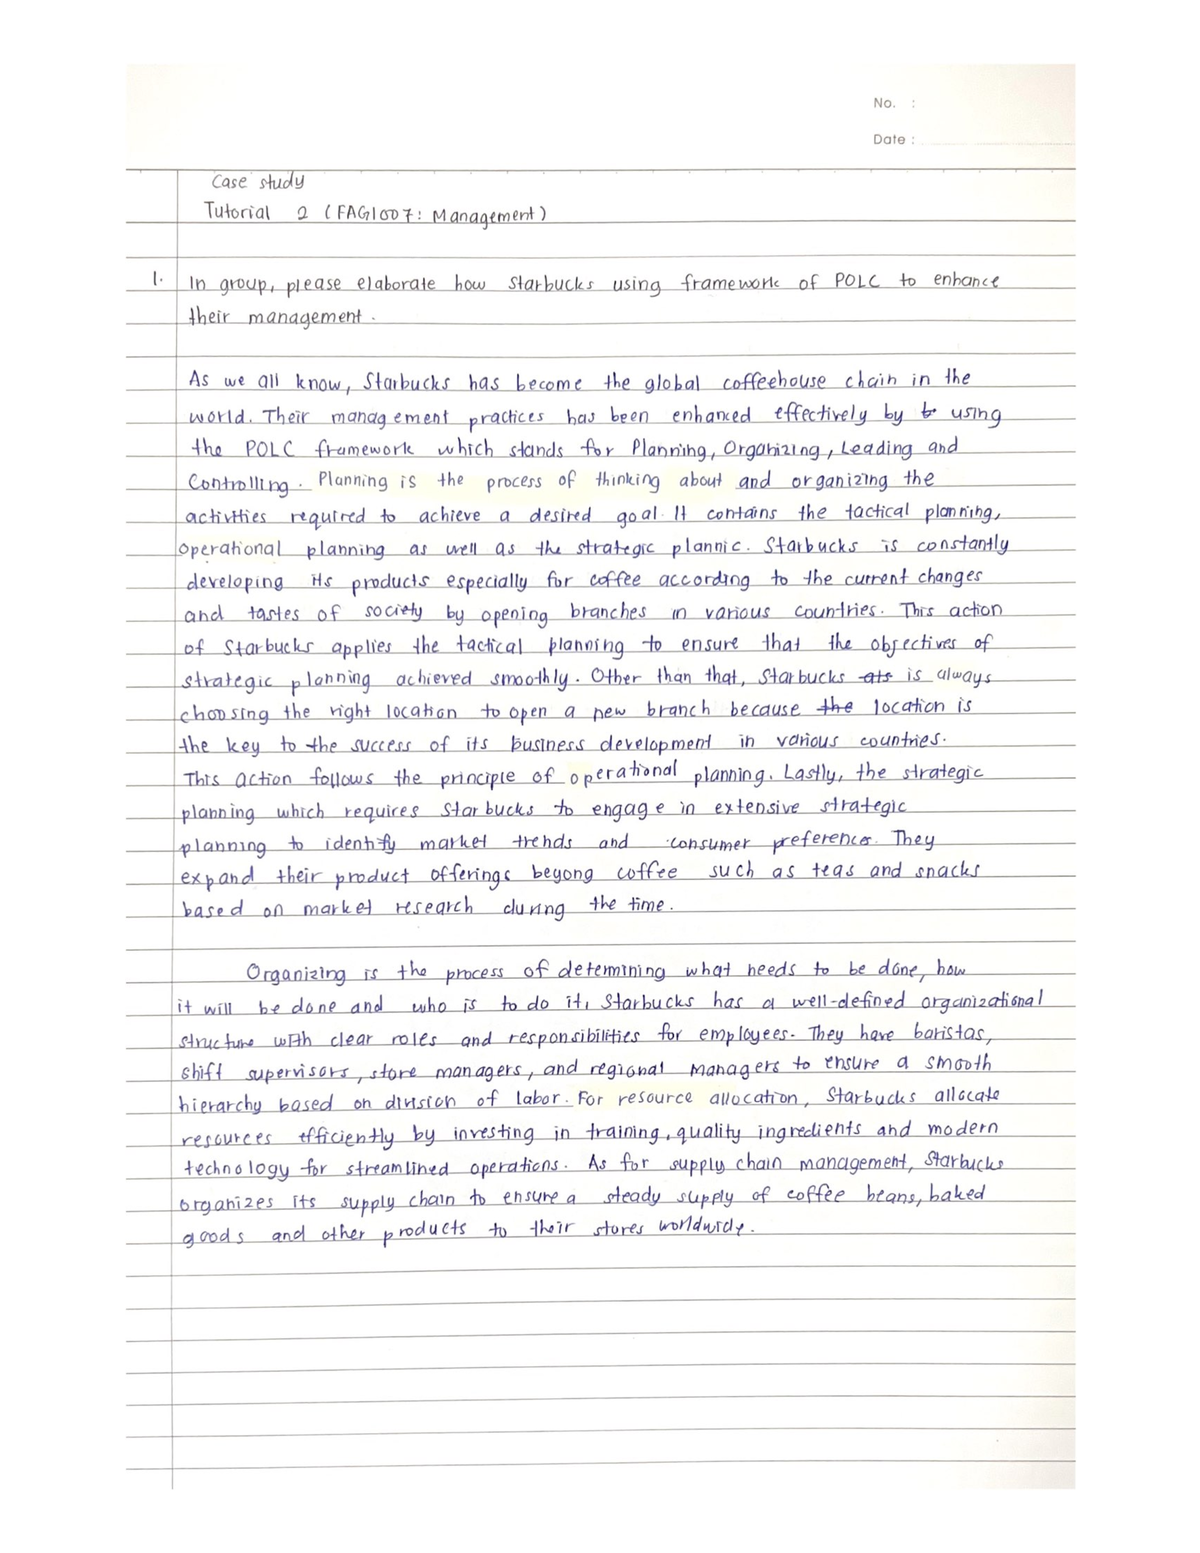 No. :
Date :
Case study
Tutorial 2 (FAG1007: Management)
1. In group, please elaborate how Starbucks using framework of POLC to enhance
their management.
As we all know, Starbucks has become the global coffeehouse chain in the
world. Their management practices has been enhanced effectively by using
the POLC framework which stands for Planning, Organizing, Leading and
Controlling. Planning is the process of thinking about and organizing the
activities required to achieve a desired goal. It contains the tactical planning,
operational planning as well as the strategic plannic. Starbucks is constantly
developing its products especially for coffee according to the current changes
and tastes of society by opening branches in various countries. This action
of Starbucks applies the tactical planning to ensure that the objectives of
strategic planning achieved smoothly. Other than that, Starbucks ats is always
choosing the right location to open a new branch because the location is
the key to the success of its business development in various countries.
This action follows the principle of operational planning. Lastly, the strategic
planning which requires Starbucks to engage in extensive strategic
planning to identify market trends and consumer preferences. They
expand their product offerings beyong coffee such as teas and snacks
based on market research during the time.
Organizing is the process of determining what needs to be done, how
it will be done and who is to do it, Starbucks has a well-defined organizational
structure with clear roles and responsibilities for employees. They have baristas,
shift supervisors, store managers, and regional managers to ensure a smooth
hierarchy based on division of labor. For resource allocation, Starbucks allocate
resources efficiently by investing in training, quality ingredients and modern
technology for streamlined operations. As for supply chain management, Starbucks
organizes its supply chain to ensure a steady supply of coffee beans, baked
goods and other products to their stores worldwide.